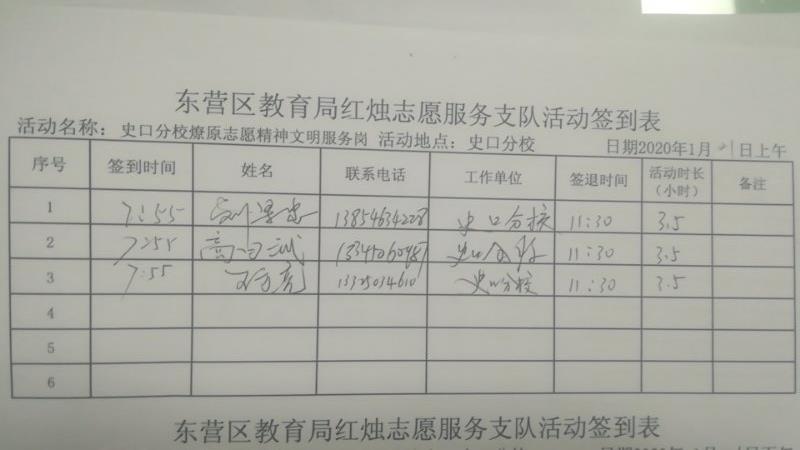 东营区教育局红烛志愿服务支队活动签到表
活动名称：史口分校燎原志愿精神文明服务岗 活动地点：史口分校 日期2020年1月 日上午
序号 签到时间 姓名 联系电话 工作单位 签退时间 活动时长（小时） 备注
1 7:55 13854634228 史口分校 11:30 3.5
2 7:55 史口分校 11:30 3.5
3 7:55 史口分校 11:30 3.5
4
5
6
东营区教育局红烛志愿服务支队活动签到表